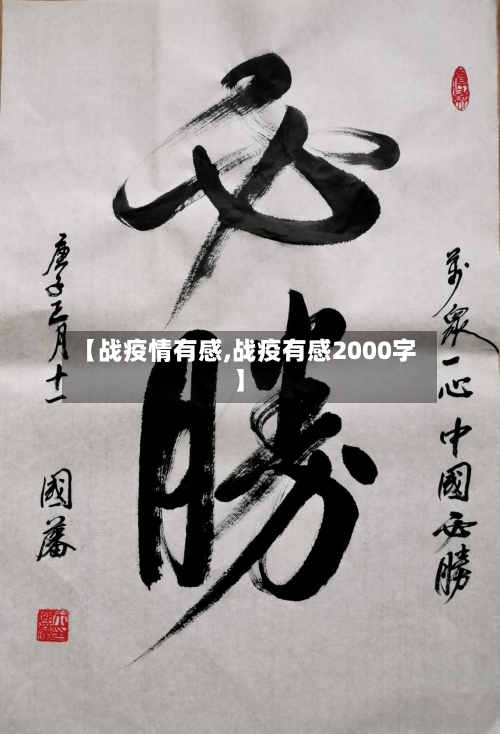 萬衆一心 中國必勝
必勝
庚子正月十一
國藩
【战疫情有感,战疫有感2000字
】